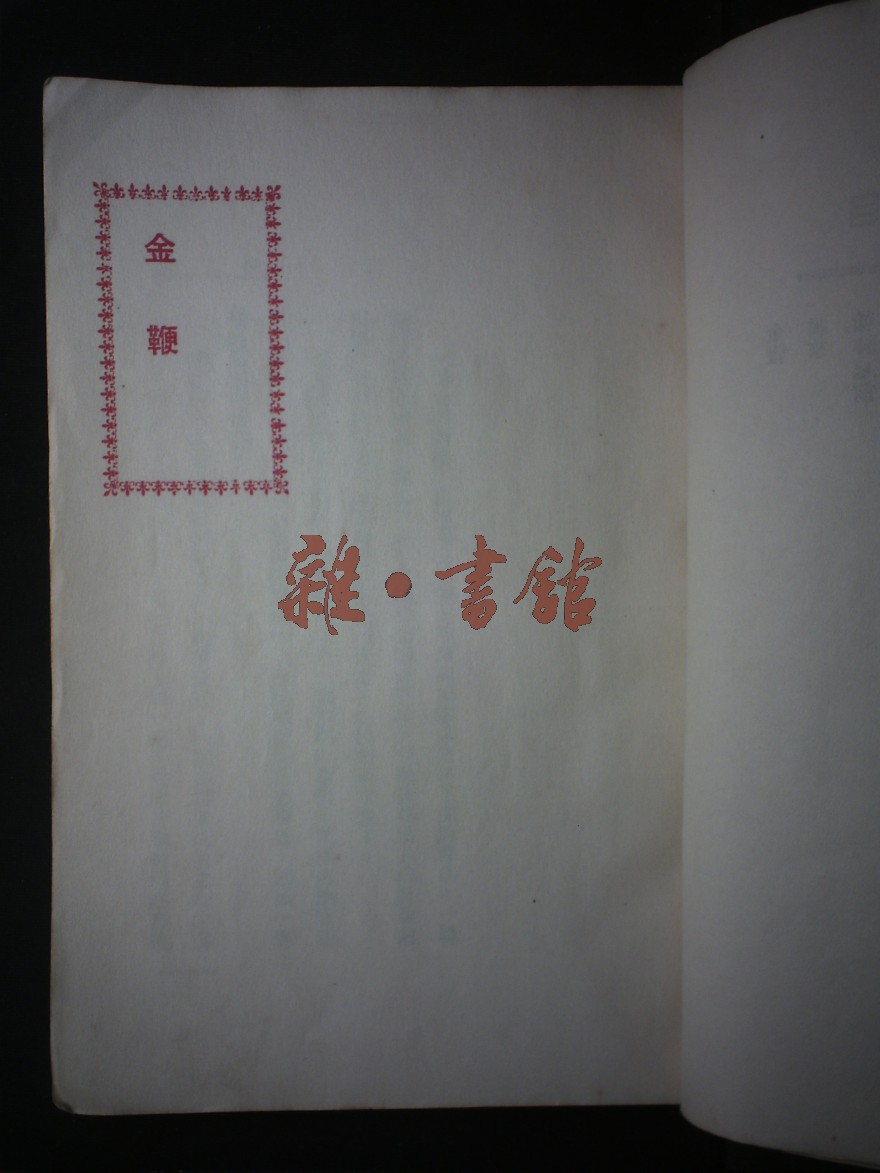 金鞭
雜·書館